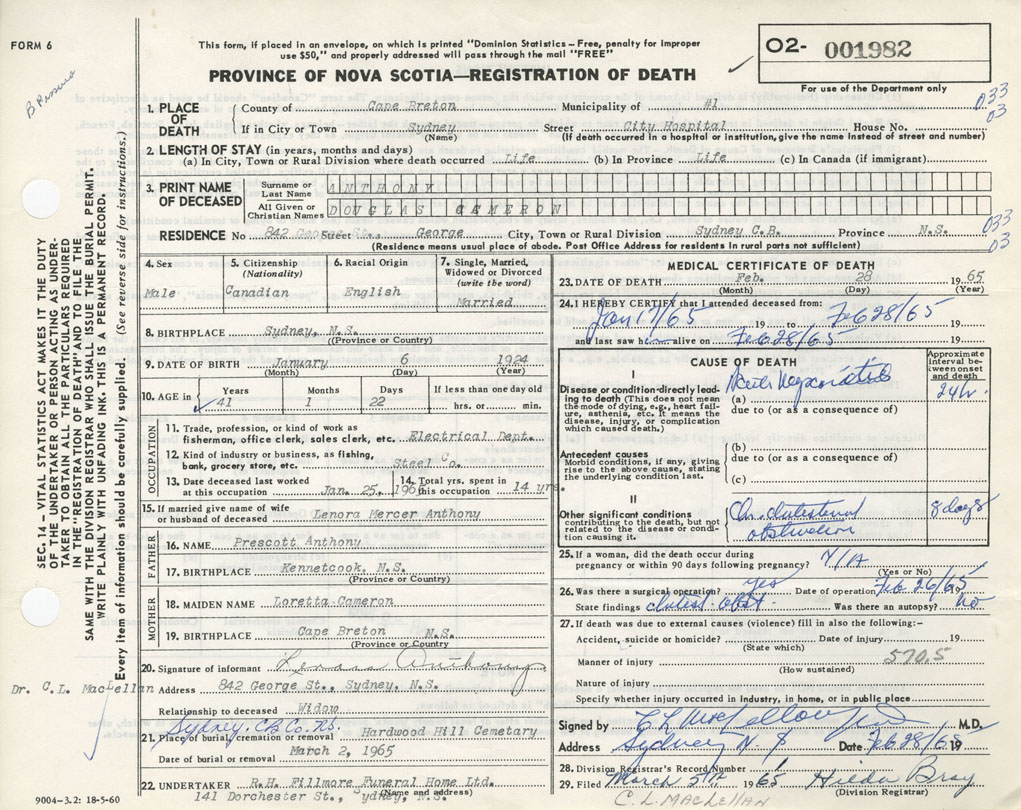 FORM 6
This form, if placed in an envelope, on which is printed "Dominion Statistics – Free, penalty for improper
use $50," and properly addressed will pass through the mail "FREE"
PROVINCE OF NOVA SCOTIA—REGISTRATION OF DEATH
O2- 001982
For use of the Department only
1. PLACE OF DEATH
County of Cape Breton Municipality of #1
033
03
If in City or Town Sydney Street City Hospital House No.
(Name) (If death occurred in a hospital or institution, give the name instead of street and number)
2. LENGTH OF STAY (in years, months and days)
(a) In City, Town or Rural Division where death occurred Life (b) In Province Life (c) In Canada (if immigrant)
3. PRINT NAME OF DECEASED
Surname or Last Name ANTHONY
All Given or Christian Names DOUGLAS CAMERON
RESIDENCE No 842 George St., Street George City, Town or Rural Division Sydney C.B. Province N.S.
033
03
(Residence means usual place of abode. Post Office Address for residents in rural parts not sufficient)
4. Sex
Male
5. Citizenship
(Nationality)
Canadian
6. Racial Origin
English
7. Single, Married,
Widowed or Divorced
(write the word)
Married
8. BIRTHPLACE Sydney, N.S.
(Province or Country)
9. DATE OF BIRTH January 6 1924
(Month) (Day) (Year)
10. AGE in
Years Months Days If less than one day old
41 1 22 hrs. or min.
OCCUPATION
11. Trade, profession or kind of work as
fisherman, office clerk, sales clerk, etc. Electrical Dept.
12. Kind of industry or business, as fishing,
bank, grocery store, etc. Steel Co.
13. Date deceased last worked
at this occupation Jan. 25, 196
14. Total yrs. spent in
this occupation 14 yrs.
15. If married give name of wife
or husband of deceased Lenora Mercer Anthony
FATHER
16. NAME Prescott Anthony
17. BIRTHPLACE Kennetcook, N.S.
(Province or Country)
MOTHER
18. MAIDEN NAME Loretta Cameron
19. BIRTHPLACE Cape Breton N.S.
(Province or Country)
20. Signature of informant Anthony
Dr. C.L. MacLellan
Address 842 George St., Sydney, N.S.
Relationship to deceased Widow
Sydney, C.B. Co. N.S.
21. Place of burial, cremation or removal Hardwood Hill Cemetary
Date of burial or removal March 2, 1965
22. UNDERTAKER R.H. Fillmore Funeral Home Ltd.
(Name and address)
141 Dorchester St., Sydney, N.S.
9004–3.2: 18-5-60
MEDICAL CERTIFICATE OF DEATH
23. DATE OF DEATH Feb. 28 1965
(Month) (Day) (Year)
24. I HEREBY CERTIFY that I attended deceased from:
Jan 17/65 19 to Feb 28/65 19
and last saw h alive on Feb 28/65 19
CAUSE OF DEATH
Approximate
interval between
onset
and death
I
Disease or condition directly leading
to death (This does not mean
the mode of dying, e.g., heart failure,
asthenia, etc. It means the
disease, injury, or complication
which caused death.)
(a) 24 hr.
due to (or as a consequence of)
Antecedent causes
Morbid conditions, if any, giving
rise to the above cause, stating
the underlying condition last.
(b)
due to (or as a consequence of)
(c)
II
Other significant conditions
contributing to the death, but not
related to the disease or condition
causing it.
obstruction
8 days
25. If a woman, did the death occur during
pregnancy or within 90 days following pregnancy? N/A
(Yes or No)
26. Was there a surgical operation? yes Date of operation Feb 26/65
State findings obst. Was there an autopsy? no
27. If death was due to external causes (violence) fill in also the following:-
Accident, suicide or homicide? Date of injury 19
(State which)
Manner of injury 570.5
(How sustained)
Nature of injury
Specify whether injury occurred in industry, in home, or in public place
Signed by C L MacLellan M.D.
Address Sydney N S Date Feb 28/65 19
28. Division Registrar's Record Number
29. Filed March 5th 1965 Hilda Bray
(Division Registrar)
C. L. MACLELLAN
SEC. 14 – VITAL STATISTICS ACT MAKES IT THE DUTY
OF THE UNDERTAKER OR PERSON ACTING AS UNDERTAKER
TO OBTAIN ALL THE PARTICULARS REQUIRED
IN THE "REGISTRATION OF DEATH" AND TO FILE THE
SAME WITH THE DIVISION REGISTRAR WHO SHALL ISSUE THE BURIAL PERMIT.
WRITE PLAINLY WITH UNFADING INK. THIS IS A PERMANENT RECORD.
Every item of information should be carefully supplied. (See reverse side for instructions.)